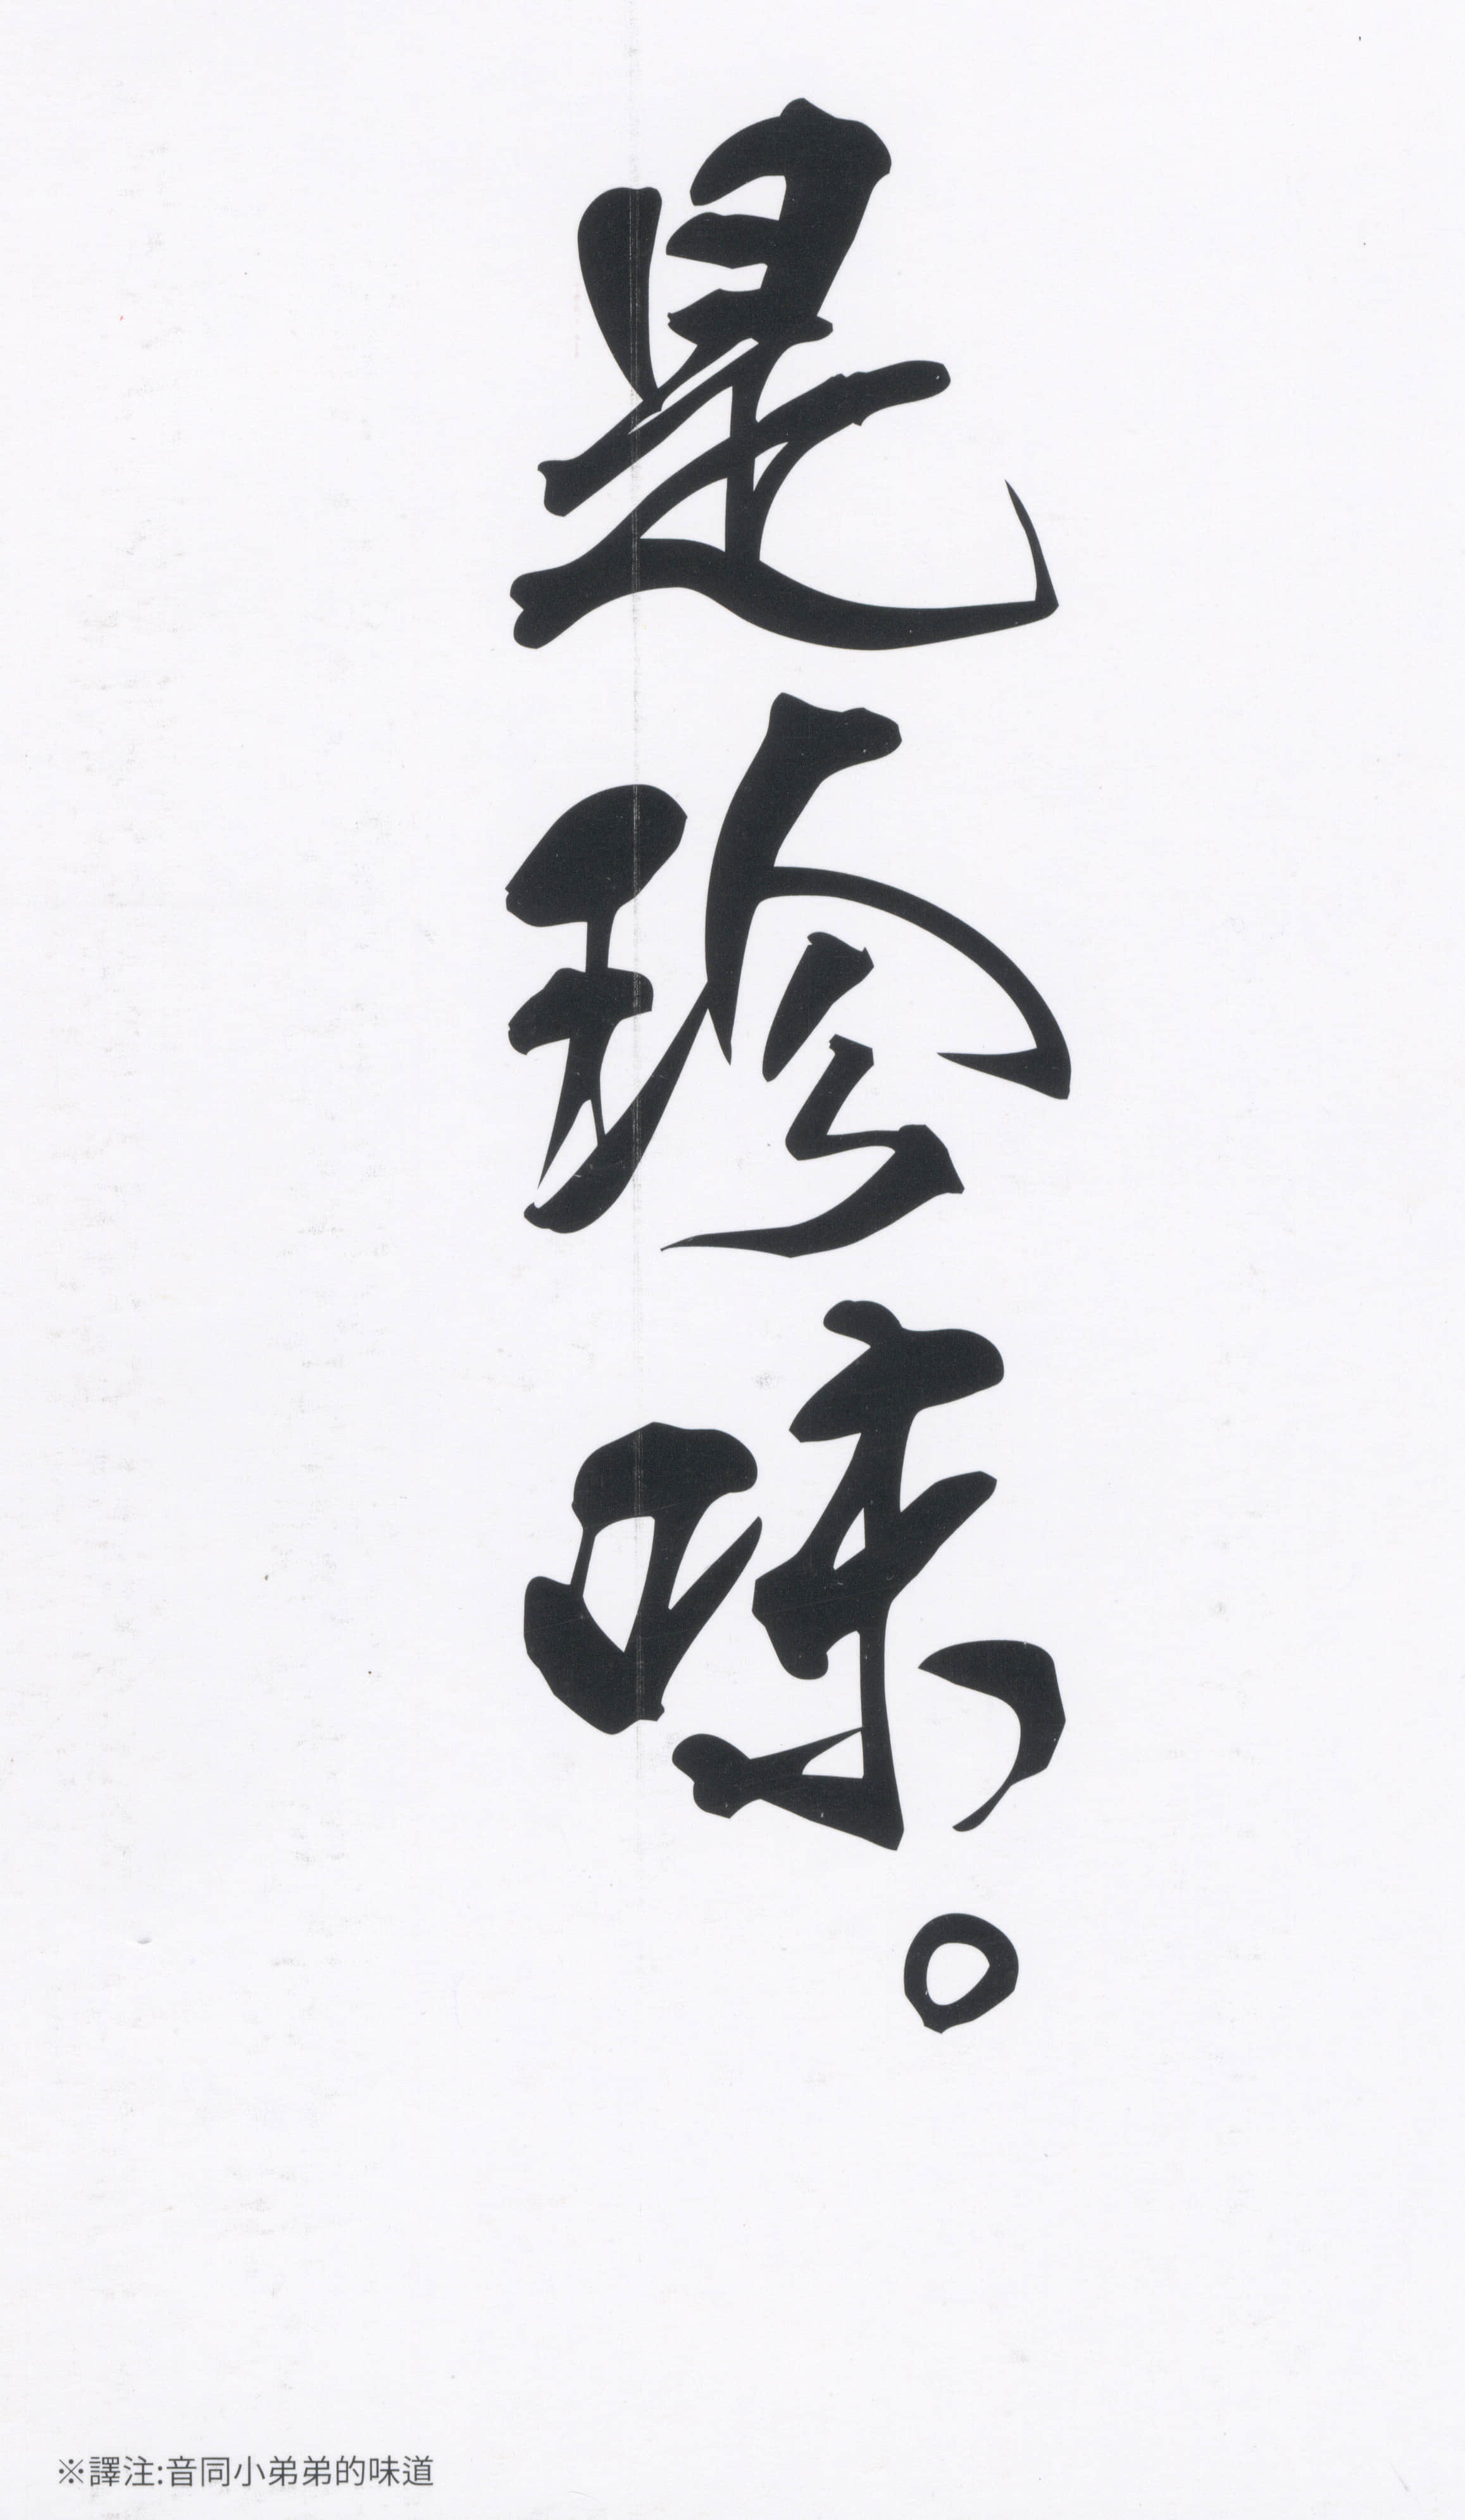 是珍味。
※譯注:音同小弟弟的味道